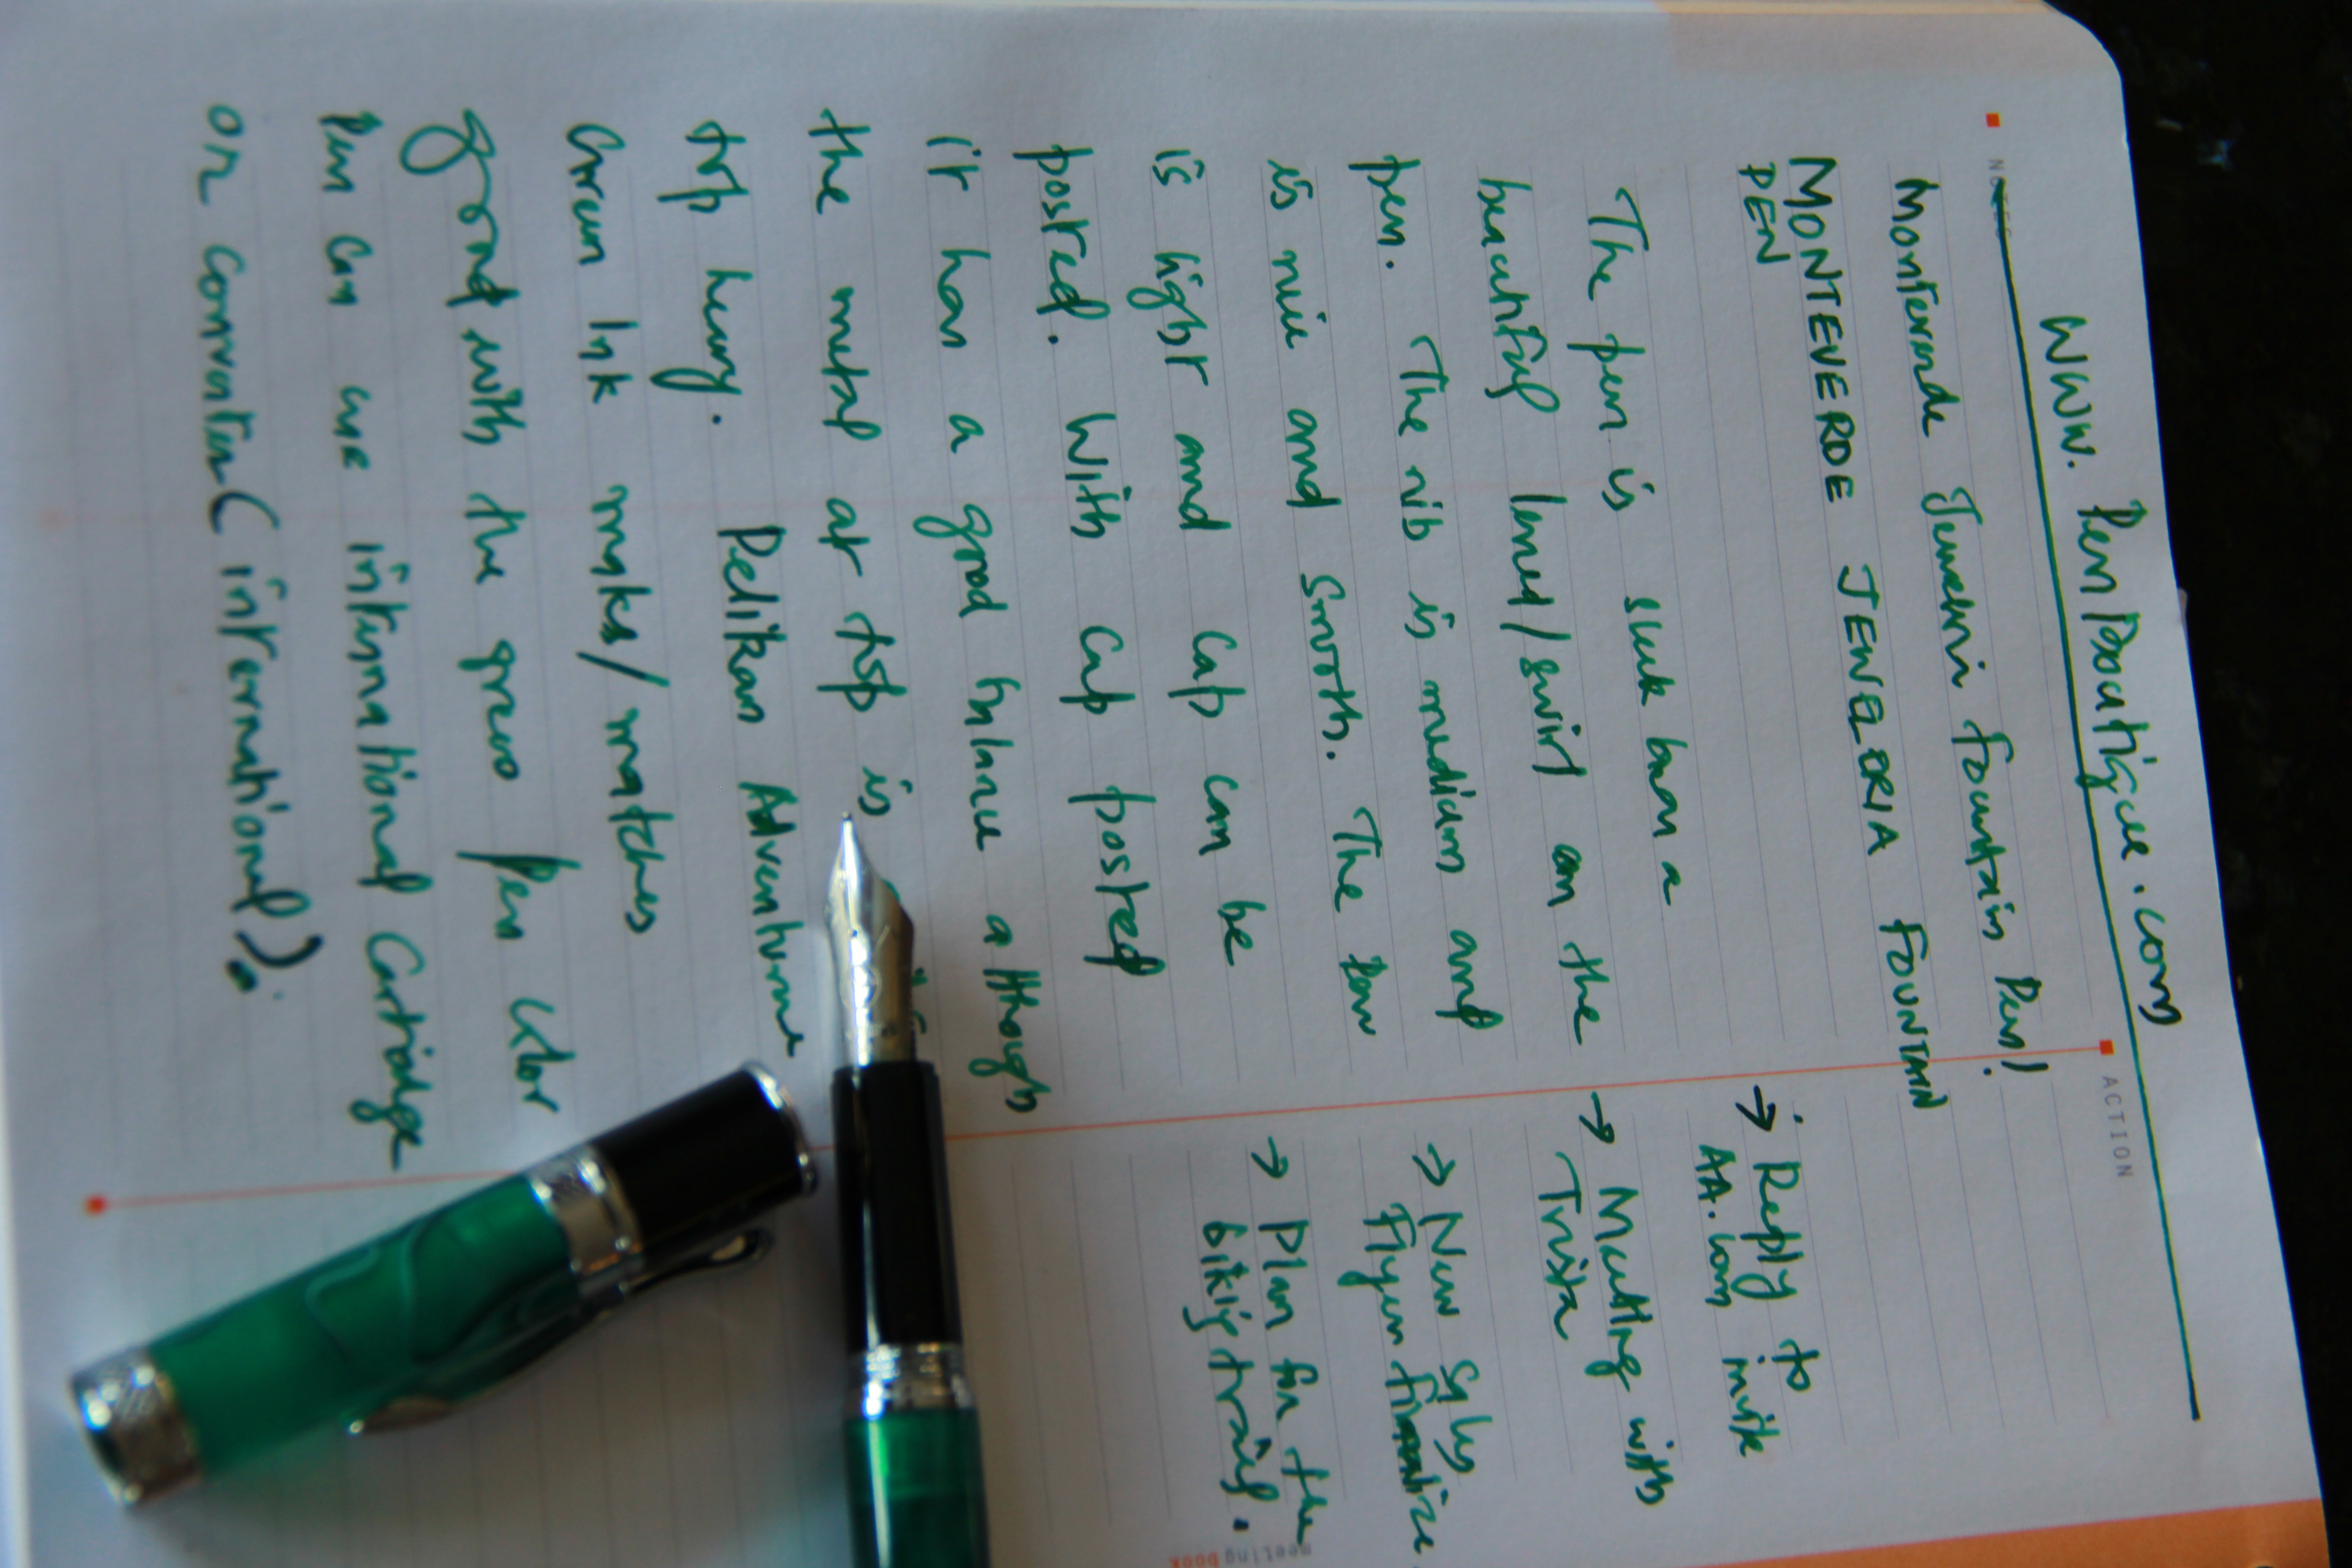 www.PenBoutique.com
NOTES
Monteverde Jewelria Fountain Pen!
MONTEVERDE JEWELRIA FOUNTAIN
PEN
The pen is sleek has a
beautiful lines/swirl on the
pen. The nib is medium and
is nice and smooth. The pen
is light and cap can be
posted. With cap posted
it has a good balance although
the metal at top is
top heavy. Pelikan Adventurine
Green Ink matches
good with the green Pen Color
Pen can use international Cartridge
or converter (international).
ACTION
→ Reply to
AA.com invite
→ Meeting with
Trisha
→ New
Flyer finalize.
→ Plan for the
biking trail.
meetingbook